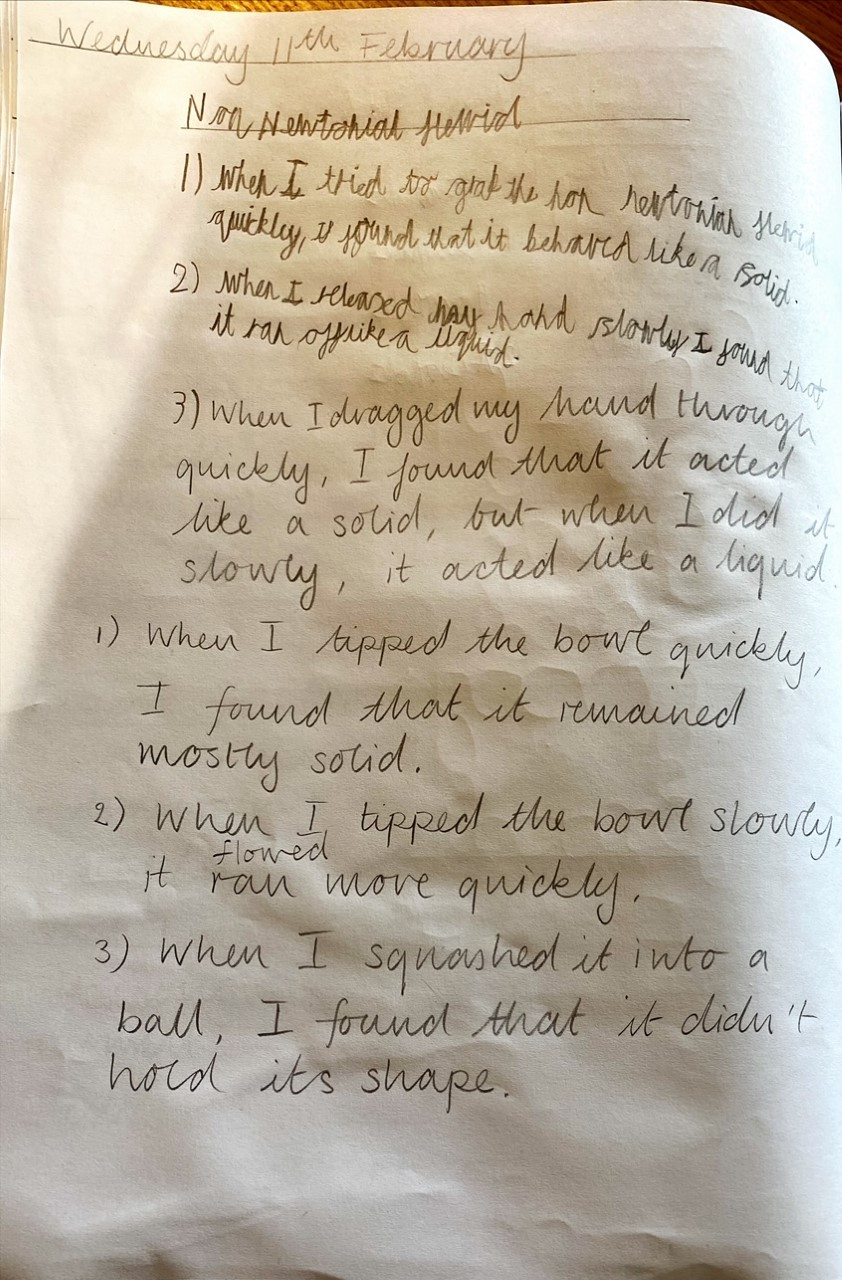 Wednesday 11th February
Non Newtonial flewid
1) When I tried to grab the non newtonian flewid
quickly, I found that it behaved like a solid.
2) When I released my hand slowly I found that
it ran off like a liquid.
3) When I dragged my hand through
quickly, I found that it acted
like a solid, but when I did it
slowly, it acted like a liquid.
1) When I tipped the bowl quickly,
I found that it remained
mostly solid.
2) When I tipped the bowl slowly,
flowed
it ran more quickly.
3) When I squashed it into a
ball, I found that it didn't
hold its shape.